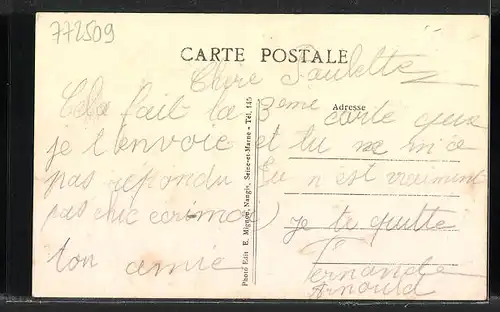 772509
CARTE POSTALE
Chère Paulette
Adresse
Cela fait la 3eme carte que
je t'envoie et tu ne m'a
pas répondu Tu n'est vraiment
pas chic écrimoi je te quitte
ton amie
Fernande
Arnould
Photo Edit E. Mignon, Nangis, Seine-et-Marne - Tél. 145